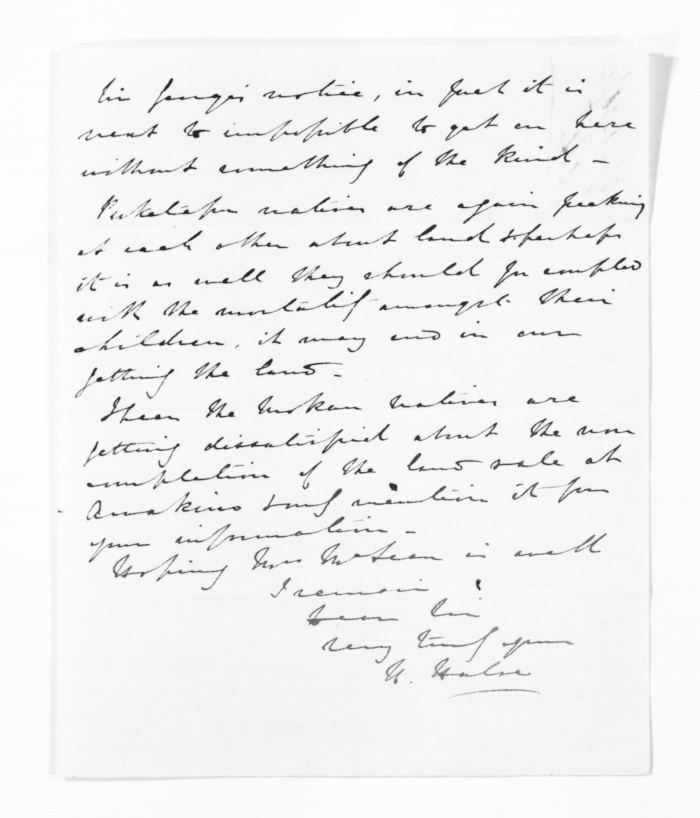 Sir George's notice, in fact it is
next to impossible to get on here
without something of the kind -
Puketapu natives are again
at each other about land & perhaps
it is as well they should for coupled
with the mortality amongst their
children, it may end in our
getting the land -
I hear the Mokau natives are
getting dissatisfied about the non
completion of the land sale at
Awakino & only mention it for
your information -
Hoping Mrs McLean is well
I remain
Dear Sir
very truly yours
H. Halse